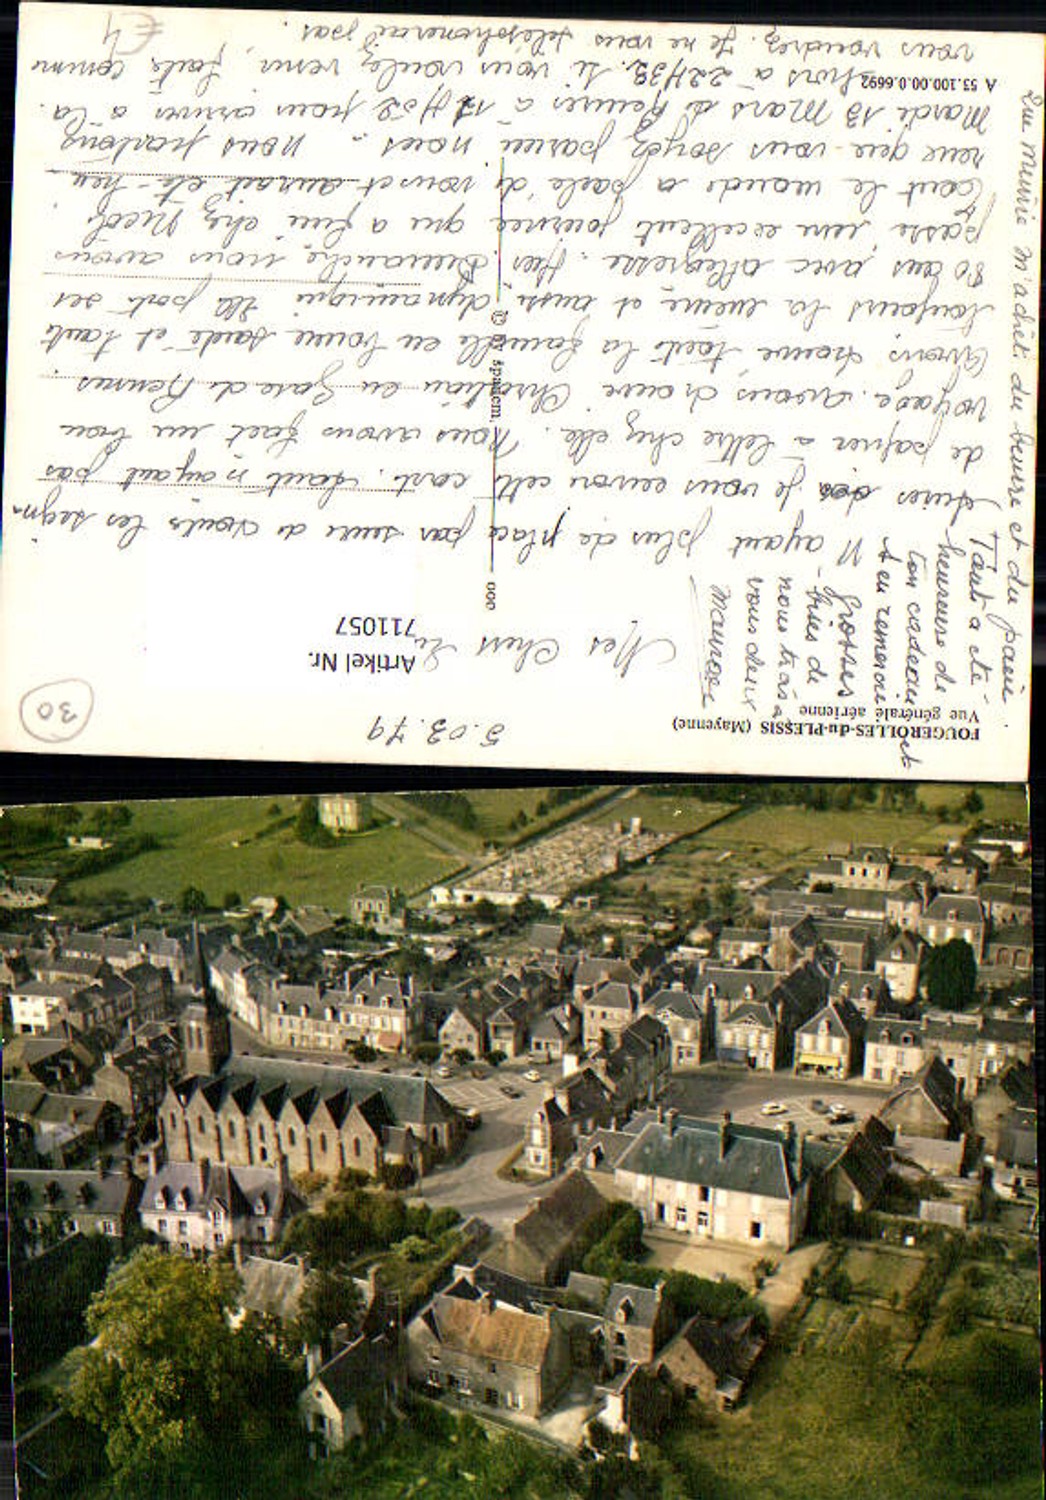 5.03.79
30
FOUGEROLLES-du-PLESSIS (Mayenne)
Vue générale aérienne
Artikel Nr.
711057
Mes Chers
N'ayant plus de place pas seure de vouts les segn-
dures je vous envoie cette carte. tant n'ayant pas
de papier à lettre chez elle. Nous avons fact un bon
voyage. avons trouve Christian en Gare de Rennes
avons trouve toute la famille en bonne santé et tant
toujours la meme et aussi dynamique elle porte ses
80 ans avec allegresse. Hier Dimanche nous avons
passe une excellent journee que a fini chez Nicole
tout le monde a parlé de vous et aurait été heu-
reux que vous soyez parmi nous - nous partons
Mardi 13 Mars de Rennes à 17H52 pour arriver à la
hors à 22H38. si vous voulez venir faite comme
vous voudrez. Je ne vous téléphonerai pas.
€4
Tant a été
heureuse de
ton cadeau et
t'en remercie
grosses
-bises de
nous trois a
vous deux
Maurice
m'achète du beurre et du pain.
A 53.100.00.0.6692
©
spadem.
000